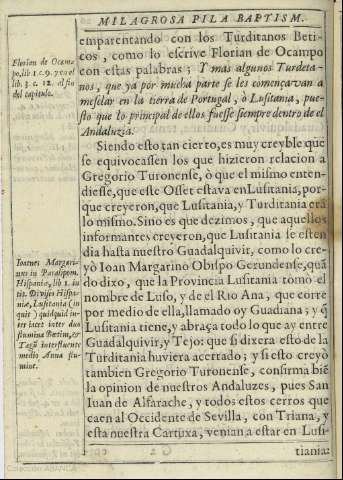 MILAGROSA PILA BAPTISM.
emparentando con los Turditanos Beti-
cos, como lo escrive Florian de Ocampo
con estas palabras; Y mas algunos Turdeta-
nos, que ya por mucha parte se les començavan a
mesclar en la tierra de Portugal, ò Lusitania, pue-
sto que lo principal de ellos fuesse siempre dentro de el
Andaluzia.
Siendo esto tan cierto, es muy creyble que
se equivocassen los que hizieron relacion a
Gregorio Turonense, ò que el mismo enten-
diesse, que este Osset estava en Lusitania, por-
que creyeron, que Lusitania, y Turditania erã
lo mismo. Sino es que dezimos, que aquellos
informantes creyeron, que Lusitania se esten
dia hasta nuestro Guadalquivir, como lo cre-
yò Ioan Margarino Obispo Gerundense, quã
do dixo, que la Provincia Lusitania tomò el
nombre de Luso, y de el Rio Ana, que corre
por medio de ella, llamado oy Guadiana; y q̃
Lusitania tiene, y abraça todo lo que ay entre
Guadalquivir, y Tejo: que si dixera esto de la
Turditania huviera acertado; y si esto creyò
tambien Gregorio Turonense, confirma biẽ
la opinion de nuestros Andaluzes, pues San
Iuan de Alfarache, y todos estos cerros que
caen al Occidente de Sevilla, con Triana, y
esta nuestra Cartuxa, venian a estar en Lusi-
tiania:
Florian de Ocam
po, lib 1. c. 9. y en el
lib. 3 c. 12. al fin
del capitulo.
Ioannes Margari-
nus in Paralipom.
Hispaniæ, lib 1. in
tit. Divisio Hispa-
niæ, Lusitania (in
quit) quidquid in-
ter iacet inter duo
flumina Bætim, et
Tagũ interfluente
medio Anna flu-
mine.
Colección ABANCA